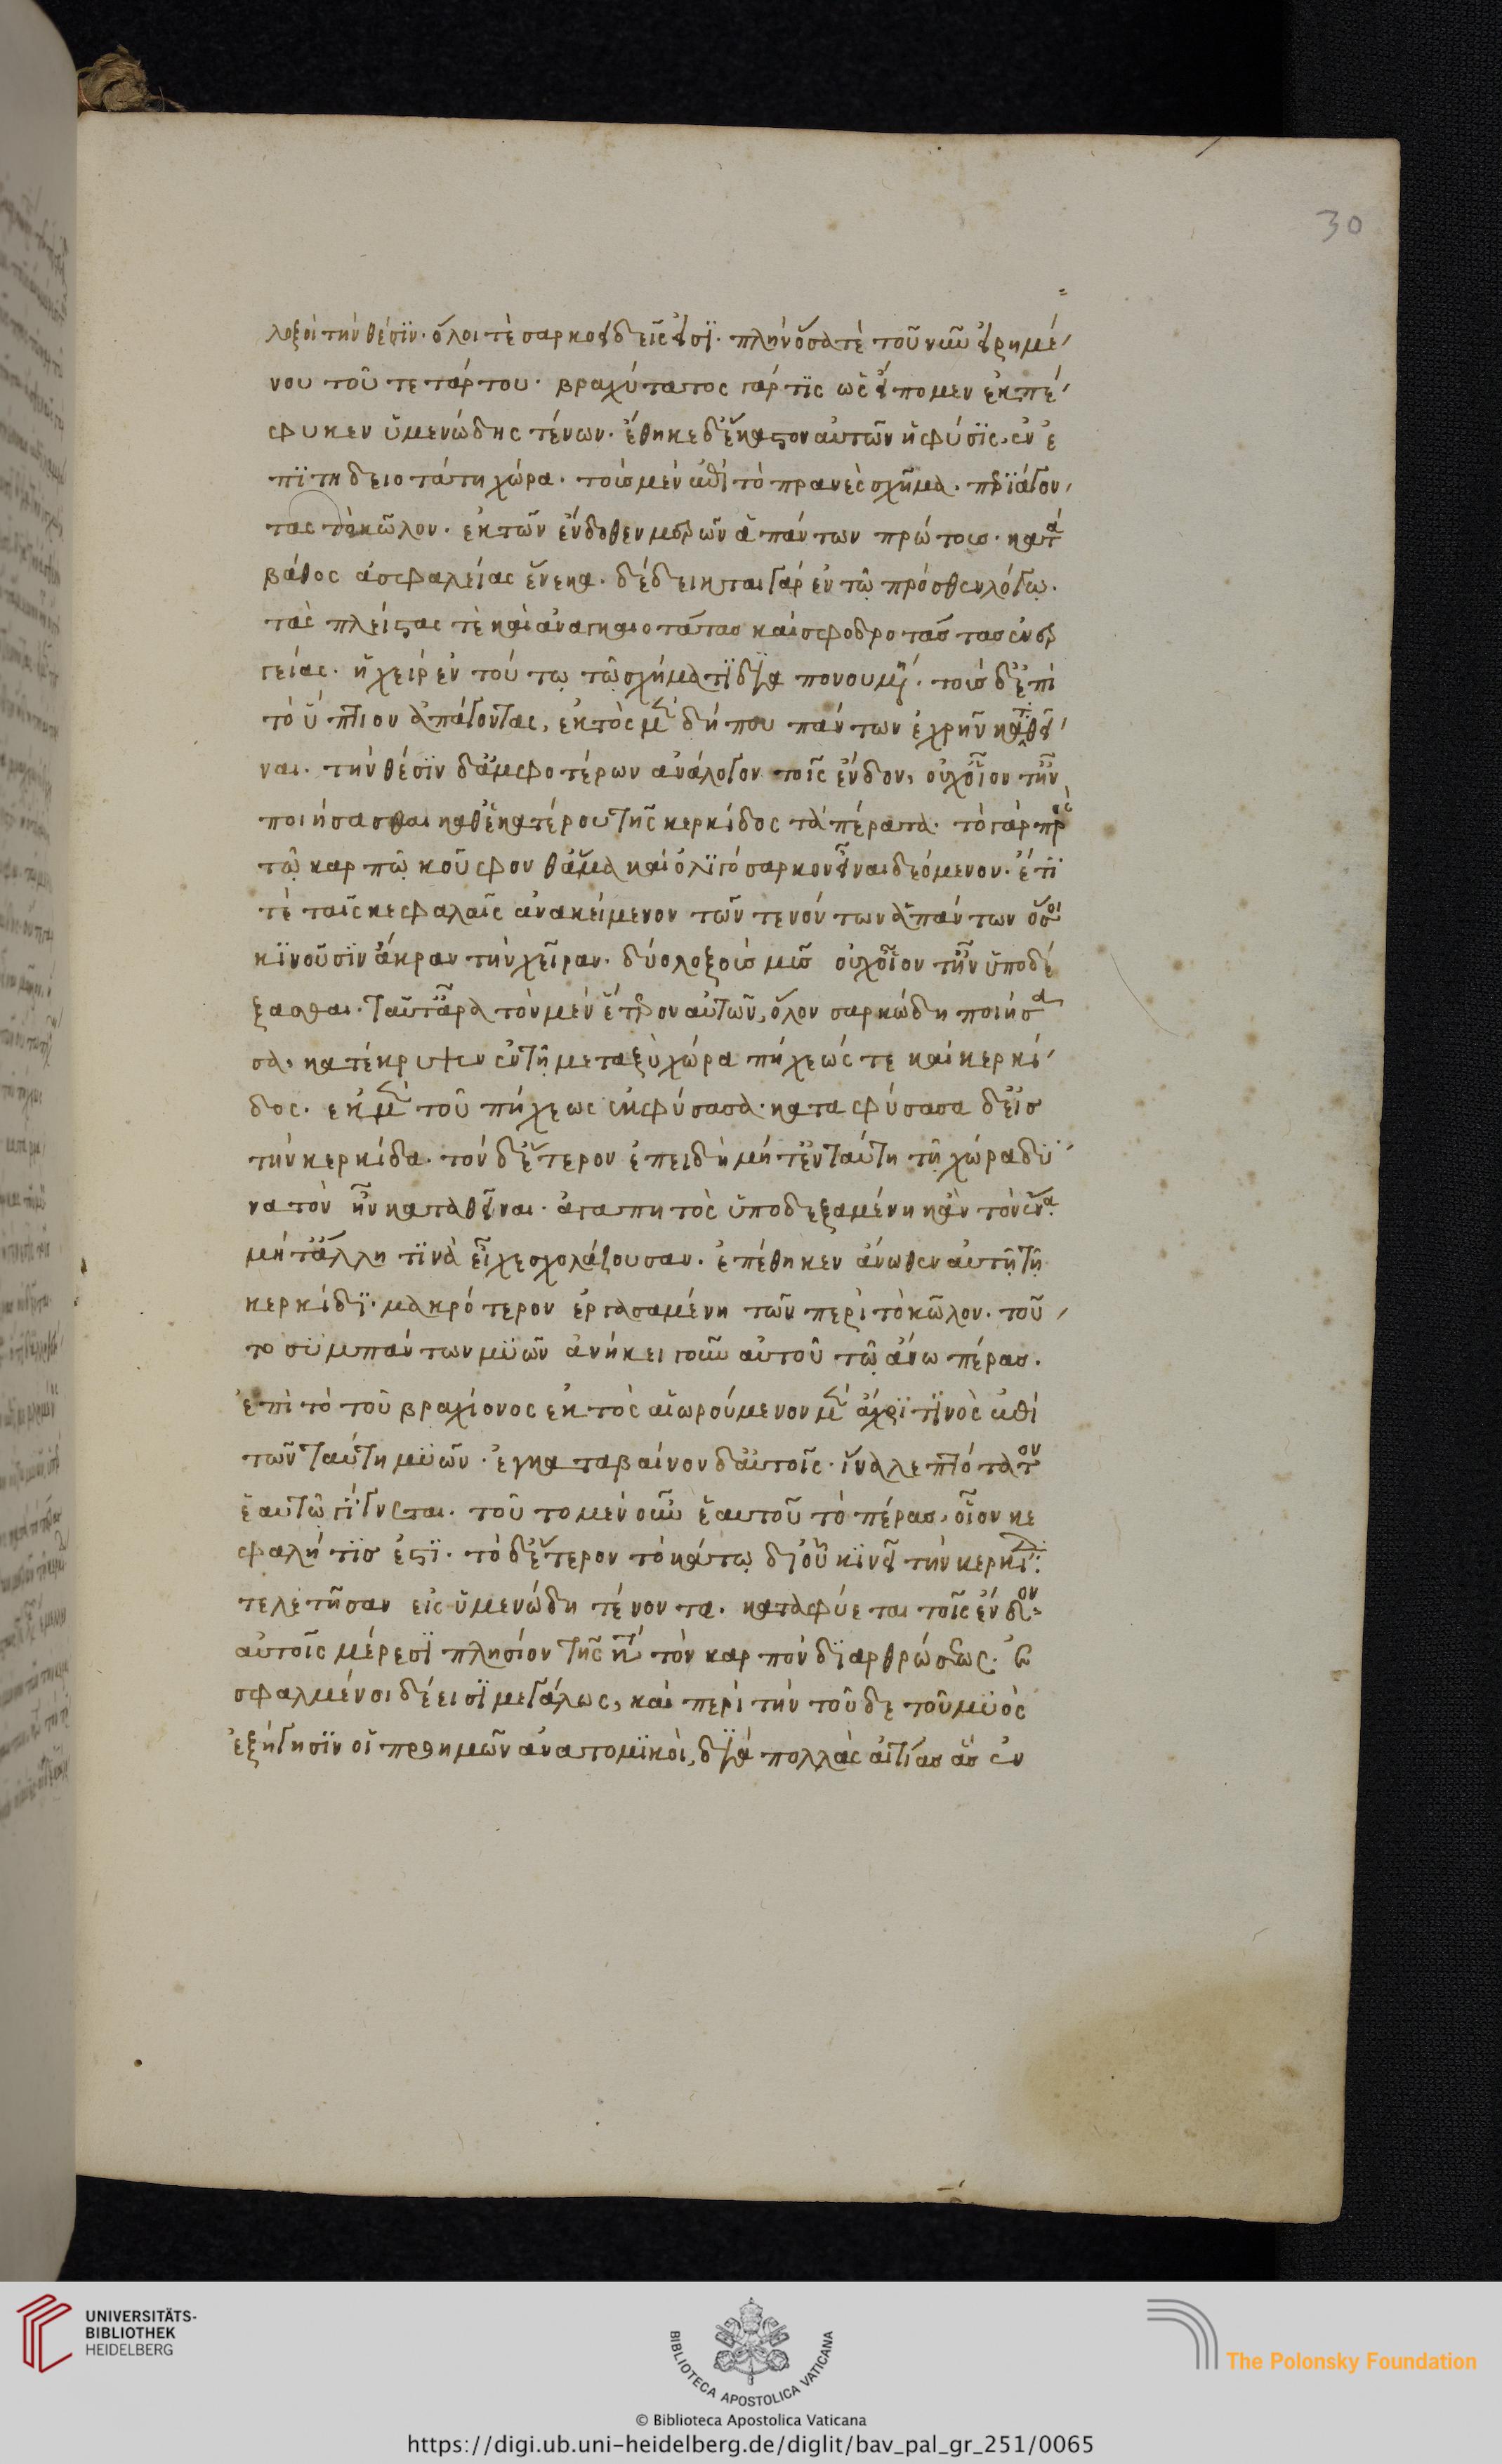 30
λοξοὶ τὴν θέσϊν· ὅλοι τὲ σαρκοειδεῖς εἰσΐ· πλὴν ὅσα τὲ τοῦ νῦν εἰρημέ
νου τοῦ τετάρτου· βραχύτατος γάρ τϊς ὡς εἴπομεν ἐκπέ
φυκεν ὑμενώδης τένων· ἔθηκε δ' ἕκαστον αὐτῶν ἡ φύσϊς, ἐν ἐ
πϊτηδειοτάτη χώρα· τοὺσ μὲν ἐπὶ τὸ πρανὲς σχῆμα· περϊάγον
τας τὸ κῶλον· ἐκ τῶν ἔνδοθεν μερῶν ἁπάντων πρώτουσ· κατὰ
βάθος ἀσφαλείας ἕνεκα· δέδεικται γὰρ ἐν τῷ πρόσθεν λόγῳ·
τὰς πλείστας τὲ καὶ ἀναγκαιοτάτασ καὶ σφοδροτάτασ τασ ἐνερ
γείας· ἡ χεὶρ ἐν τούτῳ τῷ σχήματϊ δϊαπονουμένη· τοὺσ δ' ἐπὶ
τὸ ὕπτιον ἀπάγοντας, ἐκτὸς μὲν δήπου πάντων ἐχρῆν κατατεθεῖ
ναι· τὴν θέσϊν δ' ἀμφοτέρων ἀνάλογον τοῖς ἔνδον, οὐχ οἷον τ' ἦν
ποιήσασθαι καθ' ἑκατέρου τῆς κερκίδος τὰ πέρατα· τὸ γὰρ πρὸς
τῷ καρπῷ κοῦφον θ' ἅμα καὶ ὀλϊγόσαρκον εἶναι δεόμενον· ἔτϊ
τὲ ταῖς κεφαλαῖς ἀνακείμενον τῶν τενόντων ἁπάντων ὅσοι
κϊνοῦσϊν ἄκραν τὴν χεῖραν· δύο λοξοὺσ μῦσ οὐχ οἷον τ' ἦν ὑποδέ
ξασθαι· ταῦτ' ἄρα τὸν μὲν ἕτερον αὐτῶν, ὅλον σαρκώδη ποιήσα
σα, κατέκρυψεν ἐν τῇ μεταξὺ χώρα πήχεώς τε καὶ κερκί
δος· ἐκ μὲν τοῦ πήχεως ἐκφύσασα· καταφύσασα δ' εἰσ
τὴν κερκίδα· τὸν δ' ἕτερον ἐπειδὴ μήτ' ἐνταύτη τῇ χώρα δϋ
νατὸν ἦν καταθεῖναι· ἀγαπητὸς ὑποδεξαμένη κἂν τὸν ἕνα·
μήτ' ἄλλη τϊνὰ εἶχε σχολάζουσαν· ἐπέθηκεν ἄνωθεν αὐτῇ τῇ
κερκίδϊ· μακρότερον ἐργασαμένη τῶν περὶ τὸ κῶλον· τοῦ
το σϋμπάντων μϋῶν ἀνήκει γοῦν αὐτοῦ τῷ ἄνω πέρασ·
ἐπὶ τὸ τοῦ βραχίονος ἐκτὸς αἰωρούμενον μὲν ἄχρϊ τϊνὸς ἐπὶ
τῶν ταύτη μϋῶν· ἐγκαταβαίνον δ' αὐτοῖς· ἵνα λεπτότατον
ἑαυτῷ γΐγνεται· τοῦτο μὲν οὖν ἑαυτοῦ τὸ πέρασ, οἷον κε
φαλή τϊσ ἐστΐ· τὸ δ' ἕτερον τὸ κάτω δϊ' οὗ κϊνεῖ τὴν κερκίδα:
τελετῆσαν εἰς ὑμενώδη τένοντα· καταφύεται τοῖς ἔνδον
αὐτοῖς μέρεσϊ πλησίον τῆς κατὰ τὸν καρπὸν δϊαρθρώσεως·
σφαλμένοι δέ εισϊ μεγάλως, καὶ περὶ τὴν τοῦδε τοῦ μϋὸς
ἐξήγησϊν οἱ προ ημῶν ἀνατομϊκοὶ, δϊὰ πολλὰς αἰτίασ ἃσ ἐν
UNIVERSITÄTS-
BIBLIOTHEK
HEIDELBERG
BIBLIOTECA APOSTOLICA VATICANA
The Polonsky Foundation
© Biblioteca Apostolica Vaticana
https://digi.ub.uni-heidelberg.de/diglit/bav_pal_gr_251/0065